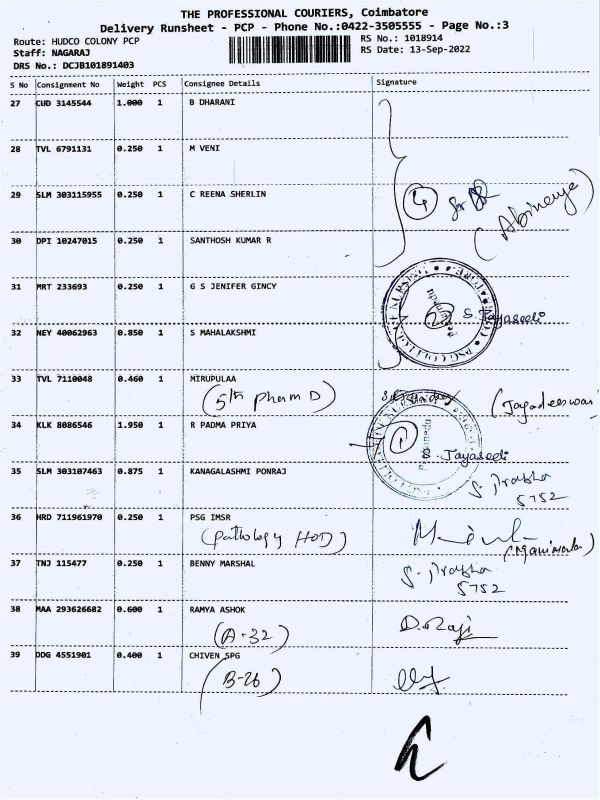 THE PROFESSIONAL COURIERS, Coimbatore
Delivery Runsheet - PCP - Phone No.:0422-3505555 - Page No.:3
Route: HUDCO COLONY PCP RS No.: 1018914
Staff: NAGARAJ RS Date: 13-Sep-2022
DRS No.: DCJB101891403
S No Consignment No Weight PCS Consignee Details Signature
27 CUD 3145544 1.000 1 B DHARANI
28 TVL 6791131 0.250 1 M VENI
29 SLM 303115955 0.250 1 C REENA SHERLIN
4 (Abinaya)
30 DPI 10247015 0.250 1 SANTHOSH KUMAR R
31 MRT 233693 0.250 1 G S JENIFER GINCY
S. Jayaseeli
32 NEY 40062963 0.850 1 S MAHALAKSHMI
33 TVL 7110048 0.460 1 MIRUPULAA
(5th pharm D) (Jagadeeswari
34 KLK 8086546 1.950 1 R PADMA PRIYA
1 S. Jayaseeli
35 SLM 303107463 0.875 1 KANAGALASHMI PONRAJ
S. Prabha
5752
36 HRD 711961970 0.250 1 PSG IMSR
(pathology HOD)
37 TNJ 115477 0.250 1 BENNY MARSHAL
S. Prabha
5752
38 MAA 293626682 0.600 1 RAMYA ASHOK
(A-32) D. Raji
39 DDG 4551901 0.400 1 CHIVEN SPG
(B-26)